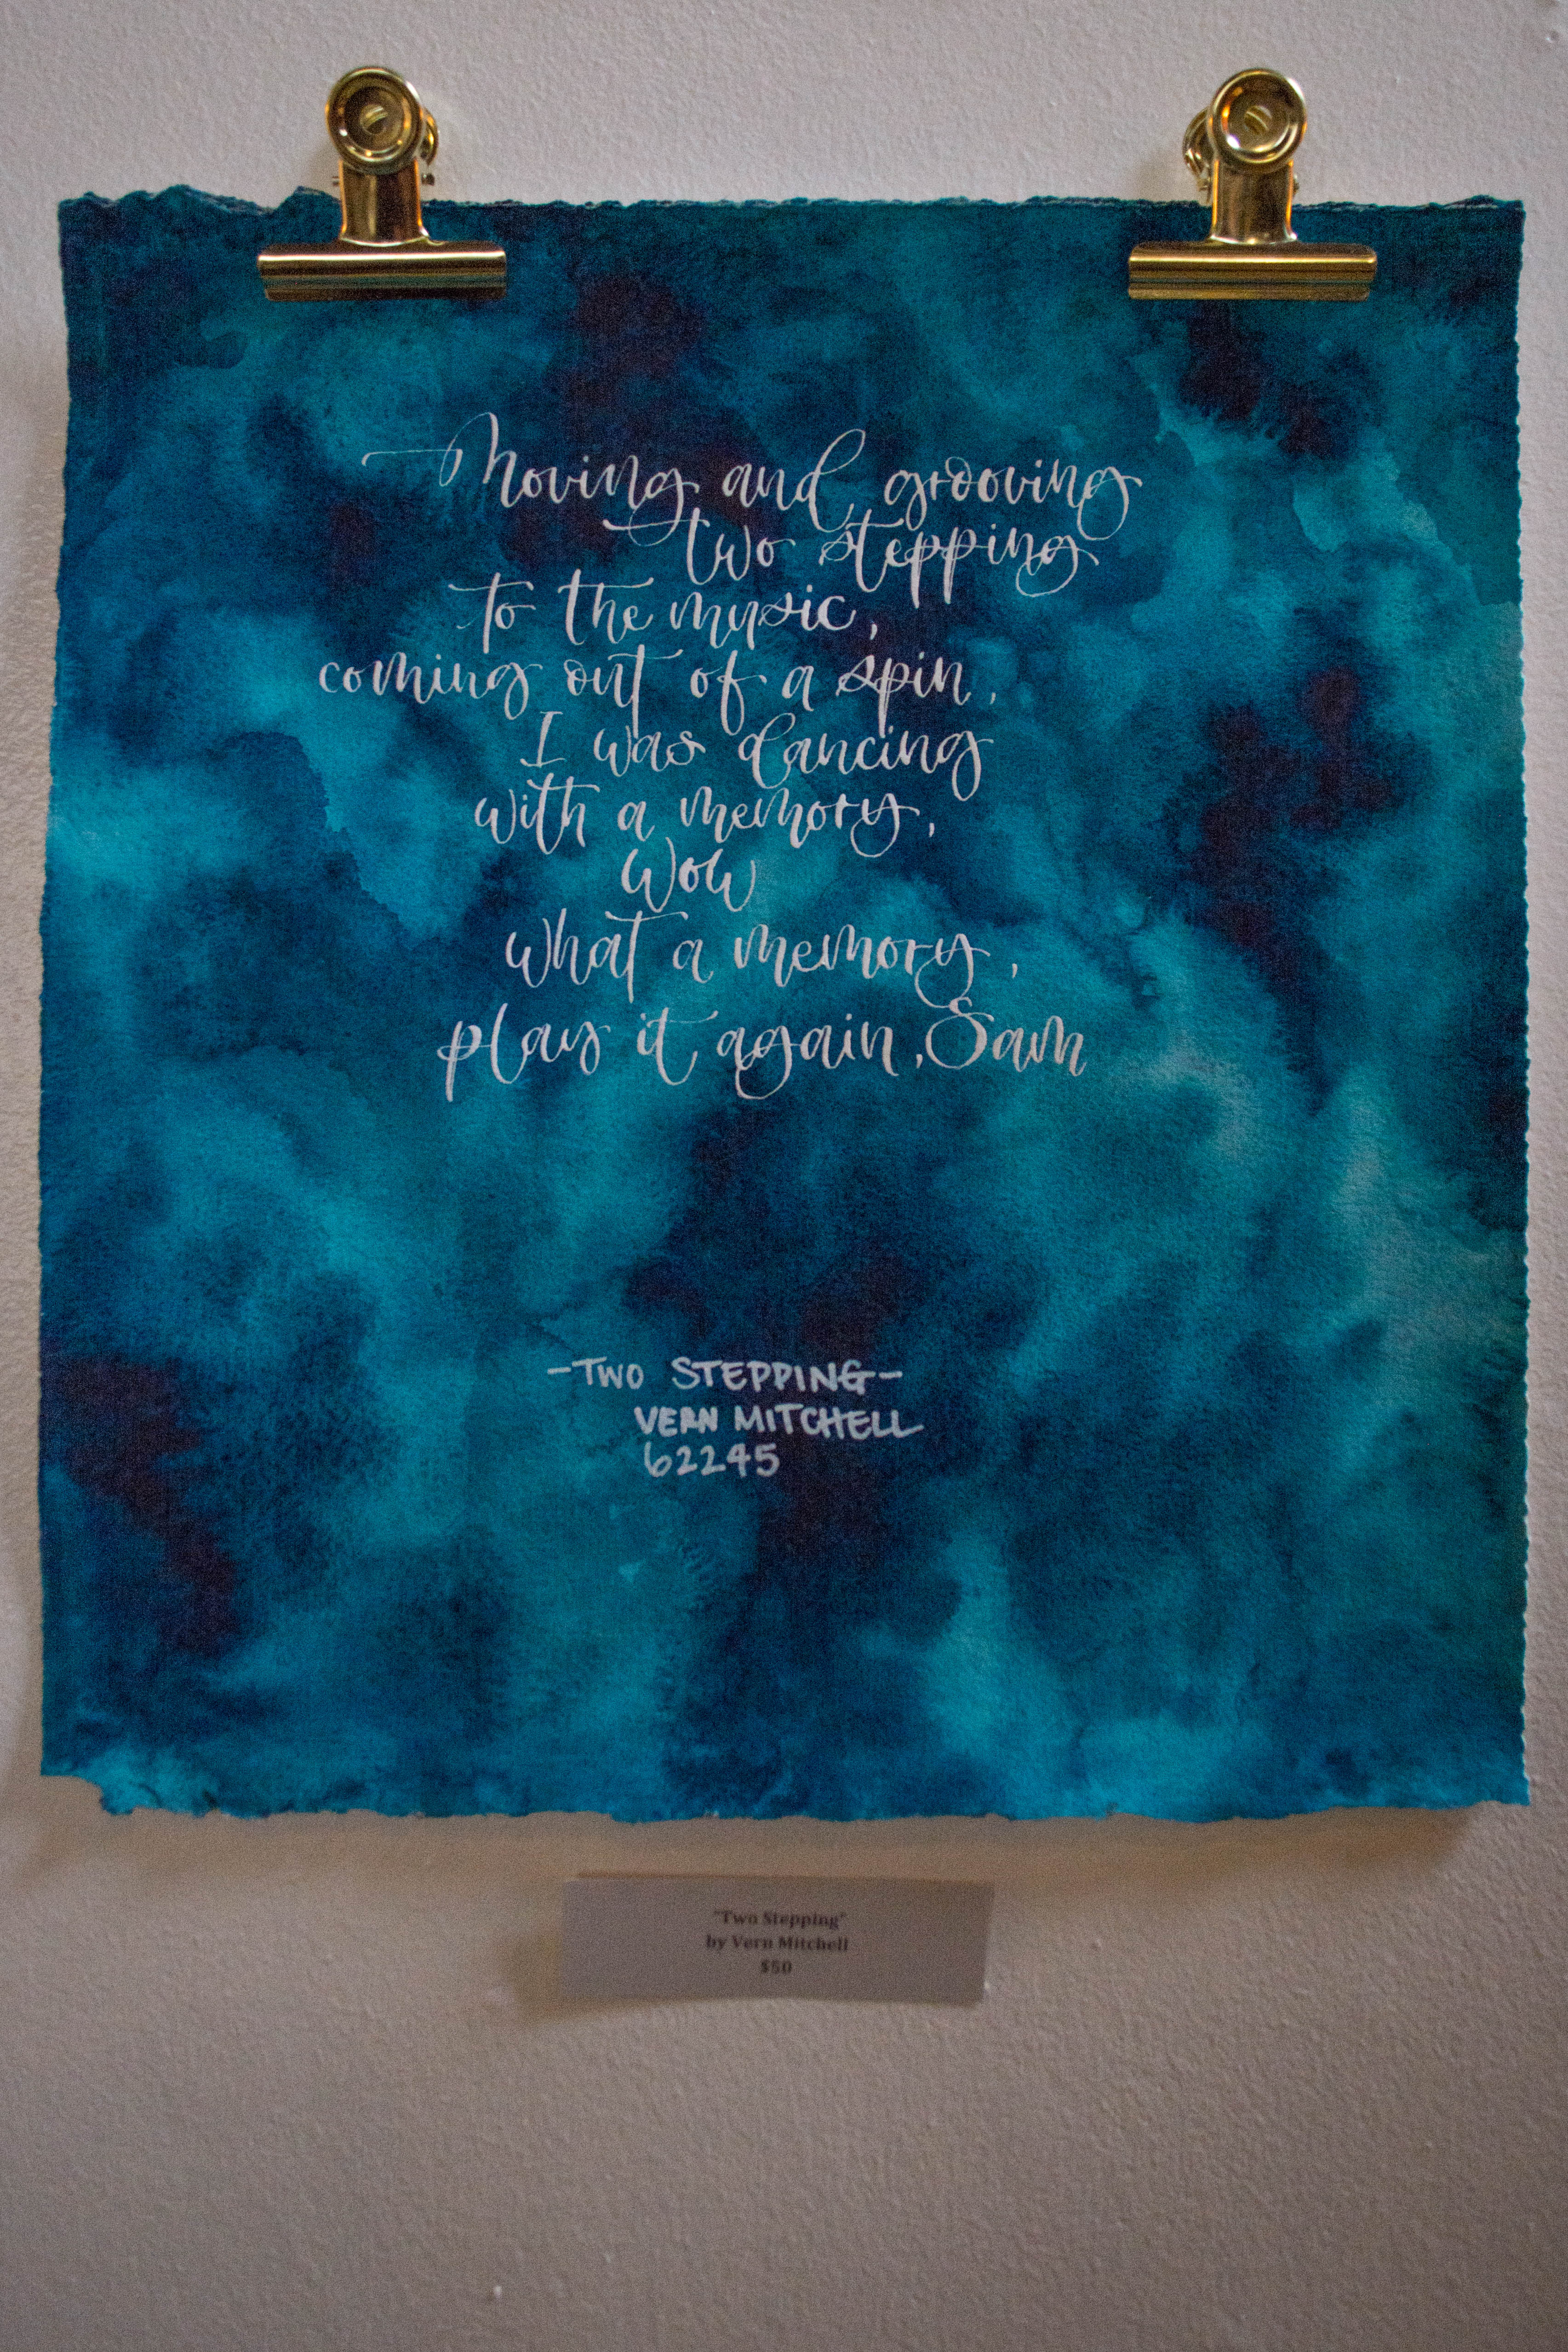 Moving and grooving
two stepping
to the music,
coming out of a spin,
I was dancing
with a memory,
Wow
what a memory,
play it again, Sam
-TWO STEPPING-
VERN MITCHELL
62245
"Two Stepping"
by Vern Mitchell
$50